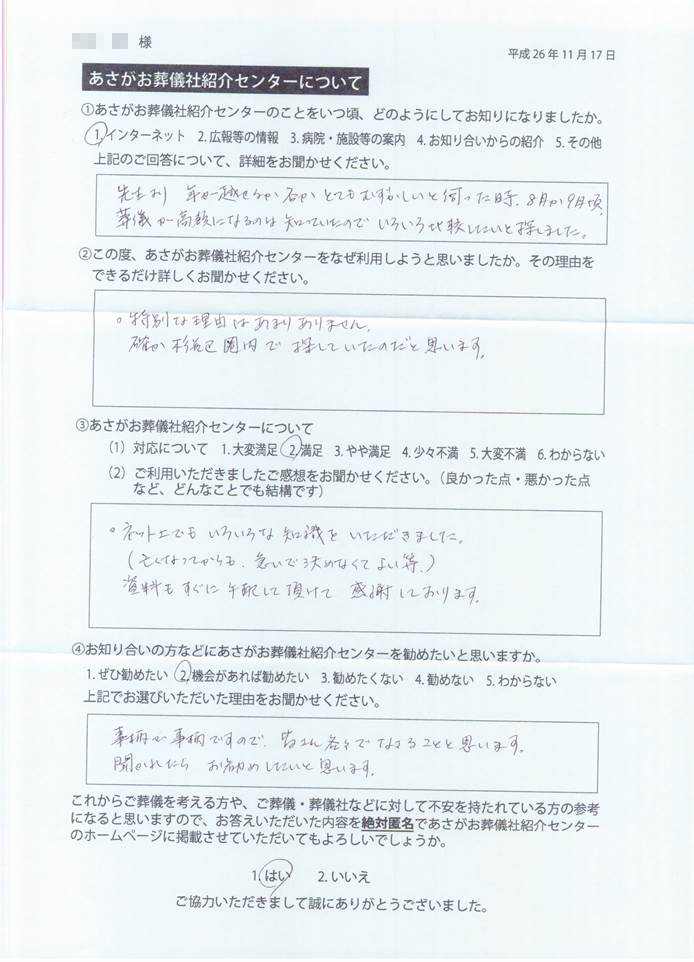 様
平成26年11月17日
あさがお葬儀社紹介センターについて
①あさがお葬儀社紹介センターのことをいつ頃、どのようにしてお知りになりましたか。
1.インターネット 2.広報等の情報 3.病院・施設等の案内 4.お知り合いからの紹介 5.その他
上記のご回答について、詳細をお聞かせください。
先生より 年が越せるか否か とてもむずかしいと伺った時、8月か9月頃、
葬儀が高額になるのは知っていたので いろいろ比較したいと探しました。
②この度、あさがお葬儀社紹介センターをなぜ利用しようと思いましたか。その理由を
できるだけ詳しくお聞かせください。
。特別な理由はあまりありません。
確か 杉並区圏内で 探していたのだと思います。
③あさがお葬儀社紹介センターについて
(1) 対応について 1.大変満足 2.満足 3.やや満足 4.少々不満 5.大変不満 6.わからない
(2) ご利用いただきましたご感想をお聞かせください。(良かった点・悪かった点
など、どんなことでも結構です)
。ネット上でも いろいろな 知識を いただきました。
(亡くなってからも、急いで決めなくてよい等。)
資料もすぐに手配して頂けて 感謝しております。
④お知り合いの方などにあさがお葬儀社紹介センターを勧めたいと思いますか。
1.ぜひ勧めたい 2.機会があれば勧めたい 3.勧めたくない 4.勧めない 5.わからない
上記でお選びいただいた理由をお聞かせください。
事柄が事柄ですので、皆さん各々でなさることと思います。
聞かれたら お勧めしたいと思います。
これからご葬儀を考える方や、ご葬儀・葬儀社などに対して不安を持たれている方の参考
になると思いますので、お答えいただいた内容を絶対匿名であさがお葬儀社紹介センター
のホームページに掲載させていただいてもよろしいでしょうか。
1.はい 2.いいえ
ご協力いただきまして誠にありがとうございました。